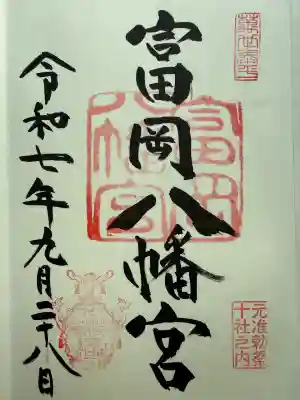 富岡八幡宮
富岡八幡宮
元准勅祭
十社之内
令和七年九月二十八日